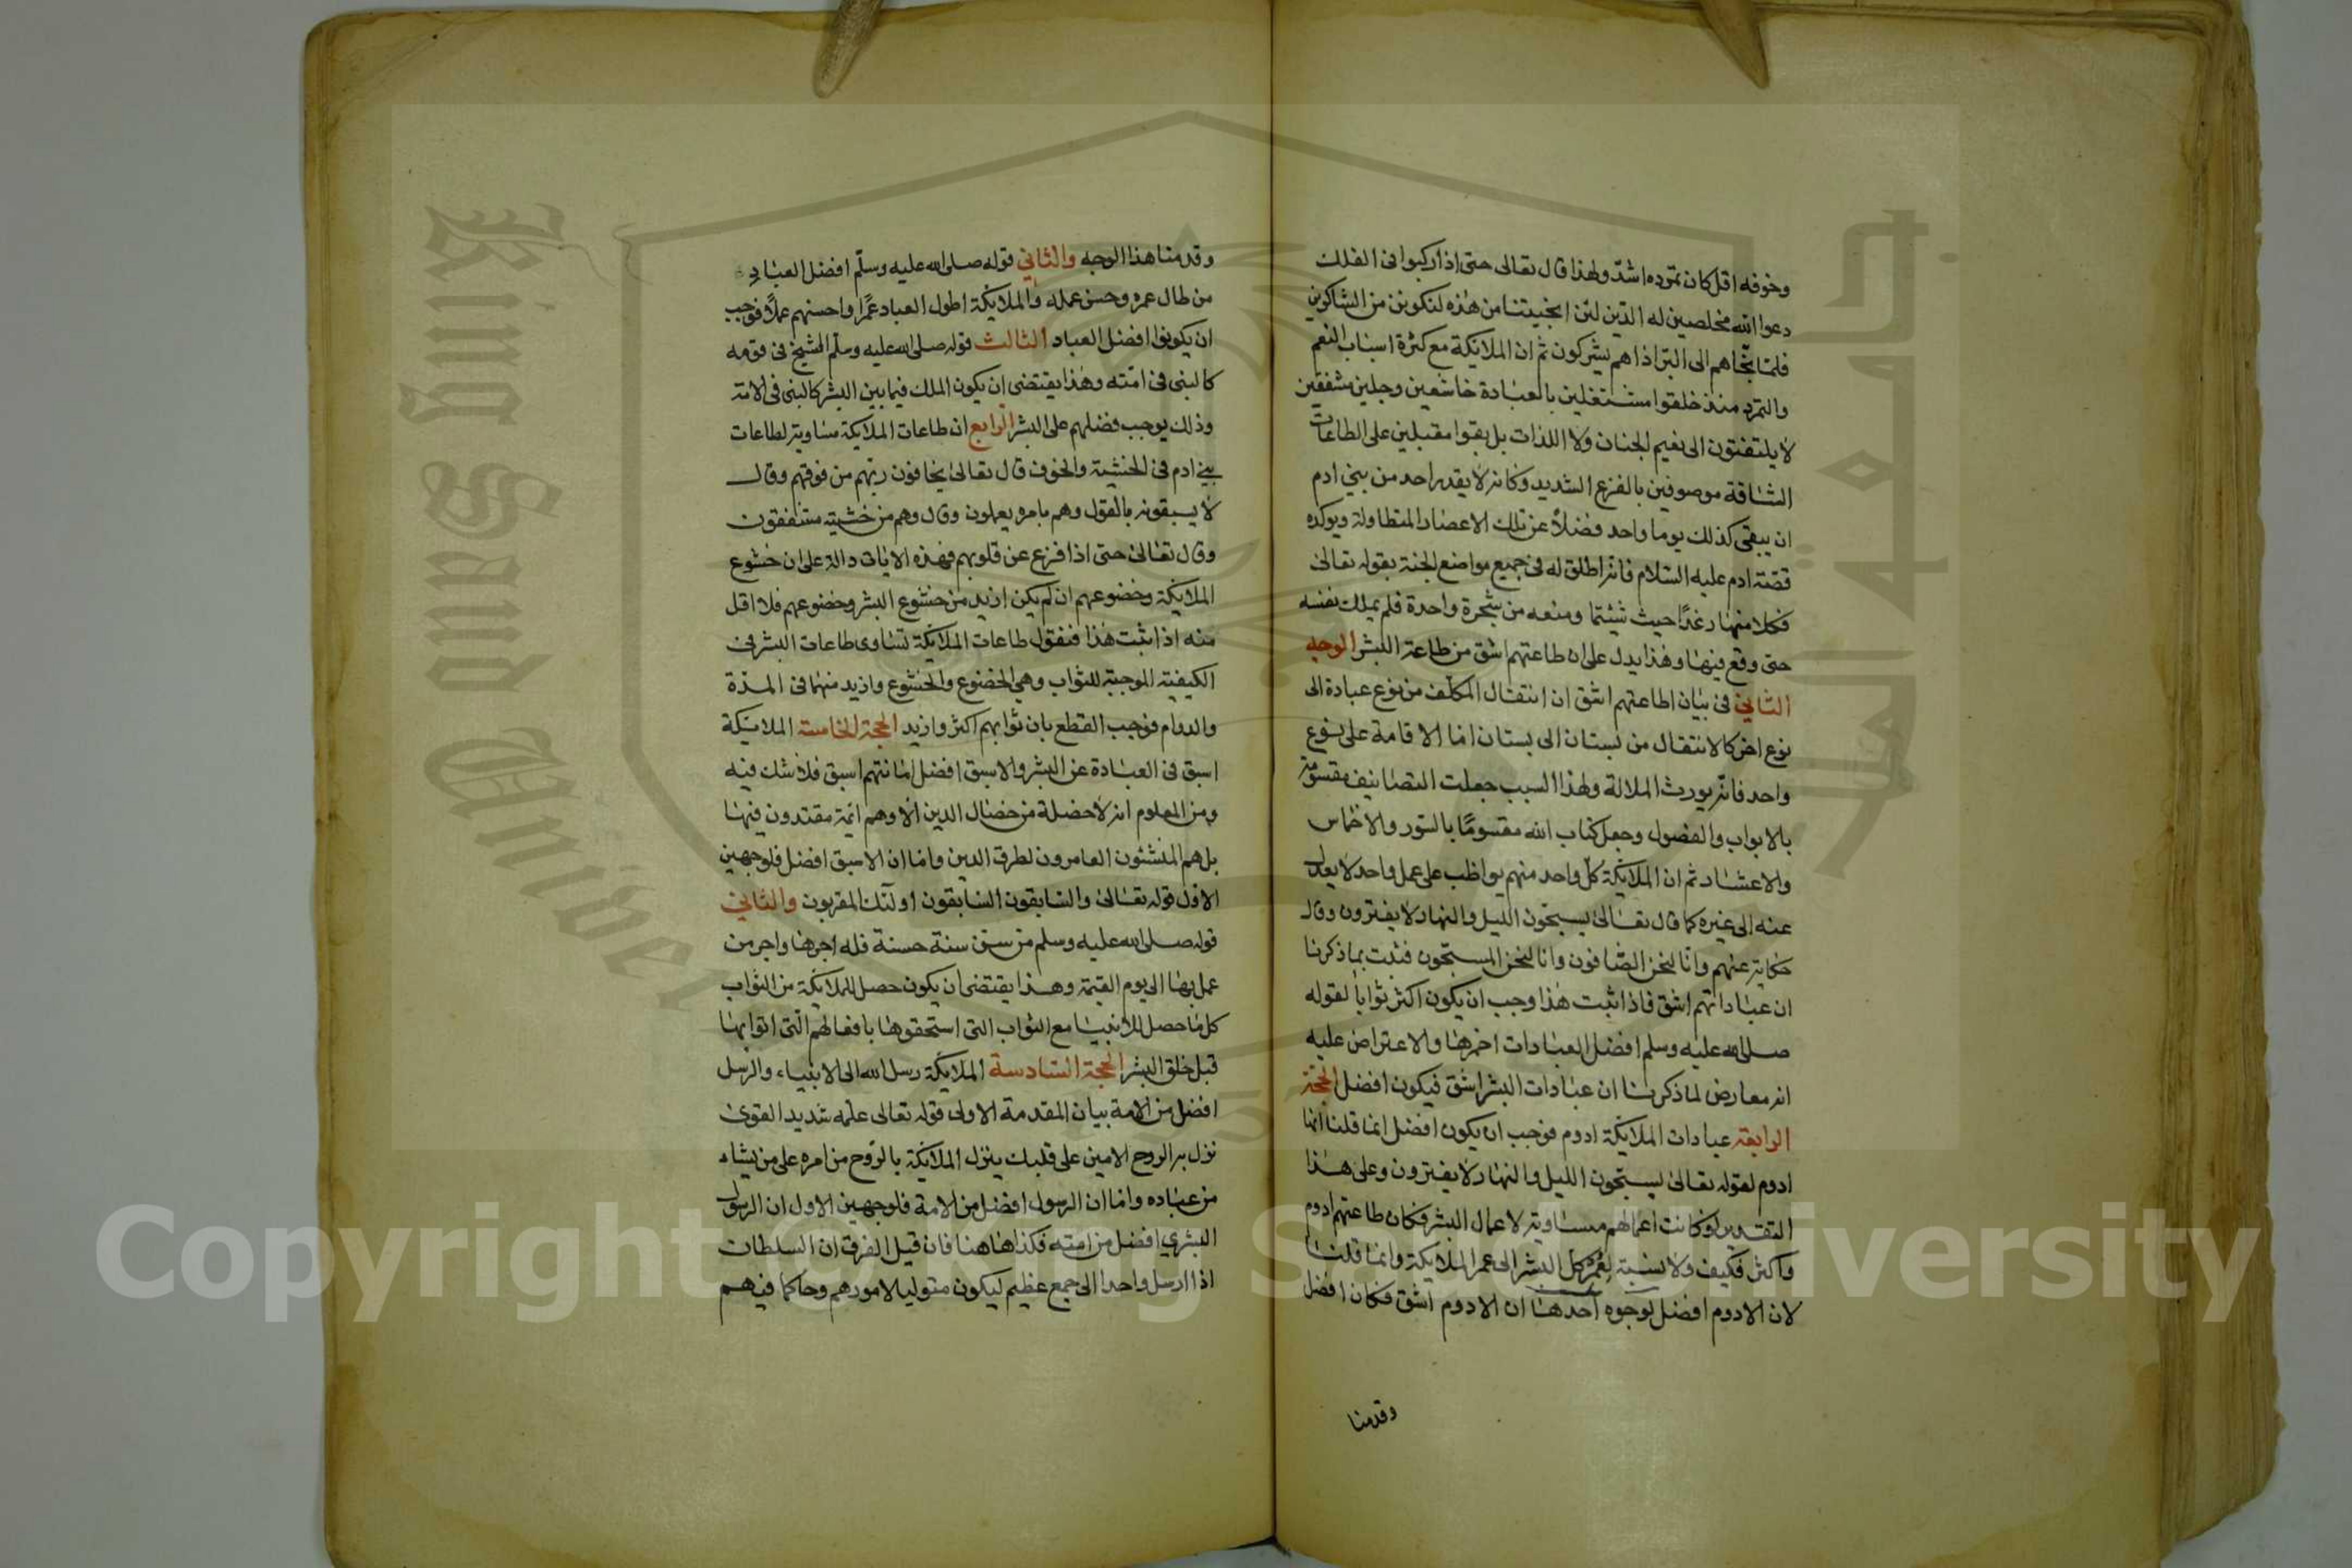 وخوفه اقل كان تمرده اشدّ ولهذا قال تعالى حتى اذا ركبوا فى الفلك
دعوا الله مخلصين له الدّين لئن انجيتنا من هذه لنكونن من الشاكرين
فلمّا نجّاهم الى البرّ اذا هم يشركون ثم ان الملائكة مع كثرة اسباب النعم
والتمرد منذ خلقوا مشتغلين بالعبادة خاشعين وجلين مشفقين
لا يلتفتون الى نعيم الجنان ولا اللذات بل بقوا مقبلين على الطاعات
الشاقة موصوفين بالفزع الشديد وكانه لا يقدر احد من بني ادم
ان يبقى كذلك يوما واحد فضلاً عن تلك الاعصار المتطاولة ويوكده
قصّة ادم عليه السّلام فانه اطلق له فى جميع مواضع الجنة بقوله تعالى
فكلا منها رغدًا حيث شيئتما ومنعه من شجرة واحدة فلم يملك نفسه
حتى وقع فيها وهذا يدل على ان طاعتهم اشق من طاعة البشر الوجه
الثاني فى بيان اطاعتهم اشق ان انتقال المكلّف من نوع عبادة الى
نوع اخر كالانتقال من بستان الى بستان اما الاقامة على نوع
واحد فانّه يورث الملالة ولهذا السبب جعلت التصانيف مقسومة
بالابواب والفصول وجعل كتاب الله مقسومًا بالسّور والاخماس
والاعشار ثم ان الملائكة كلّ واحد منهم يواظب على عمل واحد لا يعدل
عنه الى غيره كما قال تعالى يسبحّون الليل والنهار لا يفترون وقال
حكاية عنهم وانّا لنحن الصّافون وانا لنحن المسبّحون فثبت بما ذكرنا
ان عباداتهم اشق فاذا ثبت هذا وجب ان يكون اكثر ثوابا لقوله
صلى الله عليه وسلم افضل العبادات احمزها والاعتراض عليه
انه معارض لما ذكرنا ان عبادات البشر اشق فيكون افضل الحجّة
الرابعة عبادات الملائكة ادوم فوجب ان يكون افضل انما قلنا انها
ادوم لقوله تعالى يسبّحون الليل والنهار لا يفترون وعلى هذا
التقدير لو كانت اعمالهم مساوية لاعمال البشر فكان طاعتهم ادوم
واكثر فكيف ولا نسبة لعُمْر كل البشر الى عمر الملائكة وانما قلنا
لان الادوم افضل لوجوه احدها ان الادوم اشق فكان افضل
وقدمنا
وقدمنا هذا الوجه والثاني قوله صلى الله عليه وسلّم افضل العبادِ
من طال عمره وحسن عمله والملائكة اطول العباد عمرًا واحسنهم عملاً فوجب
ان يكونوا افضل العباد الثالث قوله صلى الله عليه وسلّم الشيخ فى قومه
كالنبى فى امّته وهذا يقتضى ان يكون الملك فيما بين البشر كالنبى فى الامّة
وذلك يوجب فضلهم على البشر الرابع ان طاعات الملائكة مساوية لطاعات
بني ادم فى الخشية والخوف قال تعالى يخافون ربّهم من فوقهم وقال
لا يسبقونه بالقول وهم بامره يعملون وقال وهم من خشيته مشفقون
وقال تعالى حتى اذا فزع عن قلوبهم فهذه الايات دالة على ان خشوع
الملائكة وخضوعهم ان لم يكن ازيد من خشوع البشر وخضوعهم فلا اقل
منه اذا ثبت هذا فنقول طاعات الملائكة تساوى طاعات البشر فى
الكيفيّة الموجبة للثواب وهي الخضوع والخشوع وازيد منها فى المدّة
والدوام فوجب القطع بان ثوابهم اكثر وازيد الحجة الخامسة الملائكة
اسبق فى العبادة عن البشر والاسبق افضل امّا نتهم اسبق فلا شك فيه
ومن المعلوم انه لا خصلة من خصال الدين الّا وهم ائمّة مقتدون فيها
بل هم المنشئون العامرون لطرق الدين واما ان الاسبق افضل فلوجهين
الاول قوله تعالى والسابقون السابقون اولئك المقربون والثاني
قوله صلى الله عليه وسلم من سنّ سنة حسنة فله اجرها واجر من
عمل بها الى يوم القيمة وهذا يقتضى ان يكون حصل للملائكة من الثواب
كل ما حصل للانبيا مع الثواب التى استحقوها بافعالهم الّتى اتوا بها
قبل خلق البشر الحجة السّادسة الملائكة رسل الله الى الانبياء والرسل
افضل من الامة بيان المقدمة الاولى قوله تعالى علّمه شديد القوى
نزل به الروح الامين على قلبك ينزل الملائكة بالرّوح من امره على من يشاء
من عباده واما ان الرسول افضل من الامة فلوجهين الاول ان الرسول
البشري افضل من امته فكذا هاهنا فان قيل الفرق ان السلطان
اذا ارسل واحدا الى جمع عظيم ليكون متوليا لامورهم وحاكما فيهم
King Saud Univer
جامعة الملك
Copyright © King Saud University